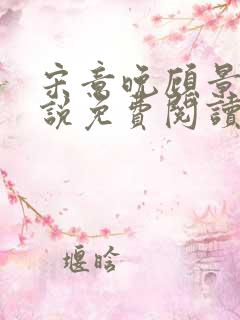 宋意晚顾景
說免費閱讀
堰晗